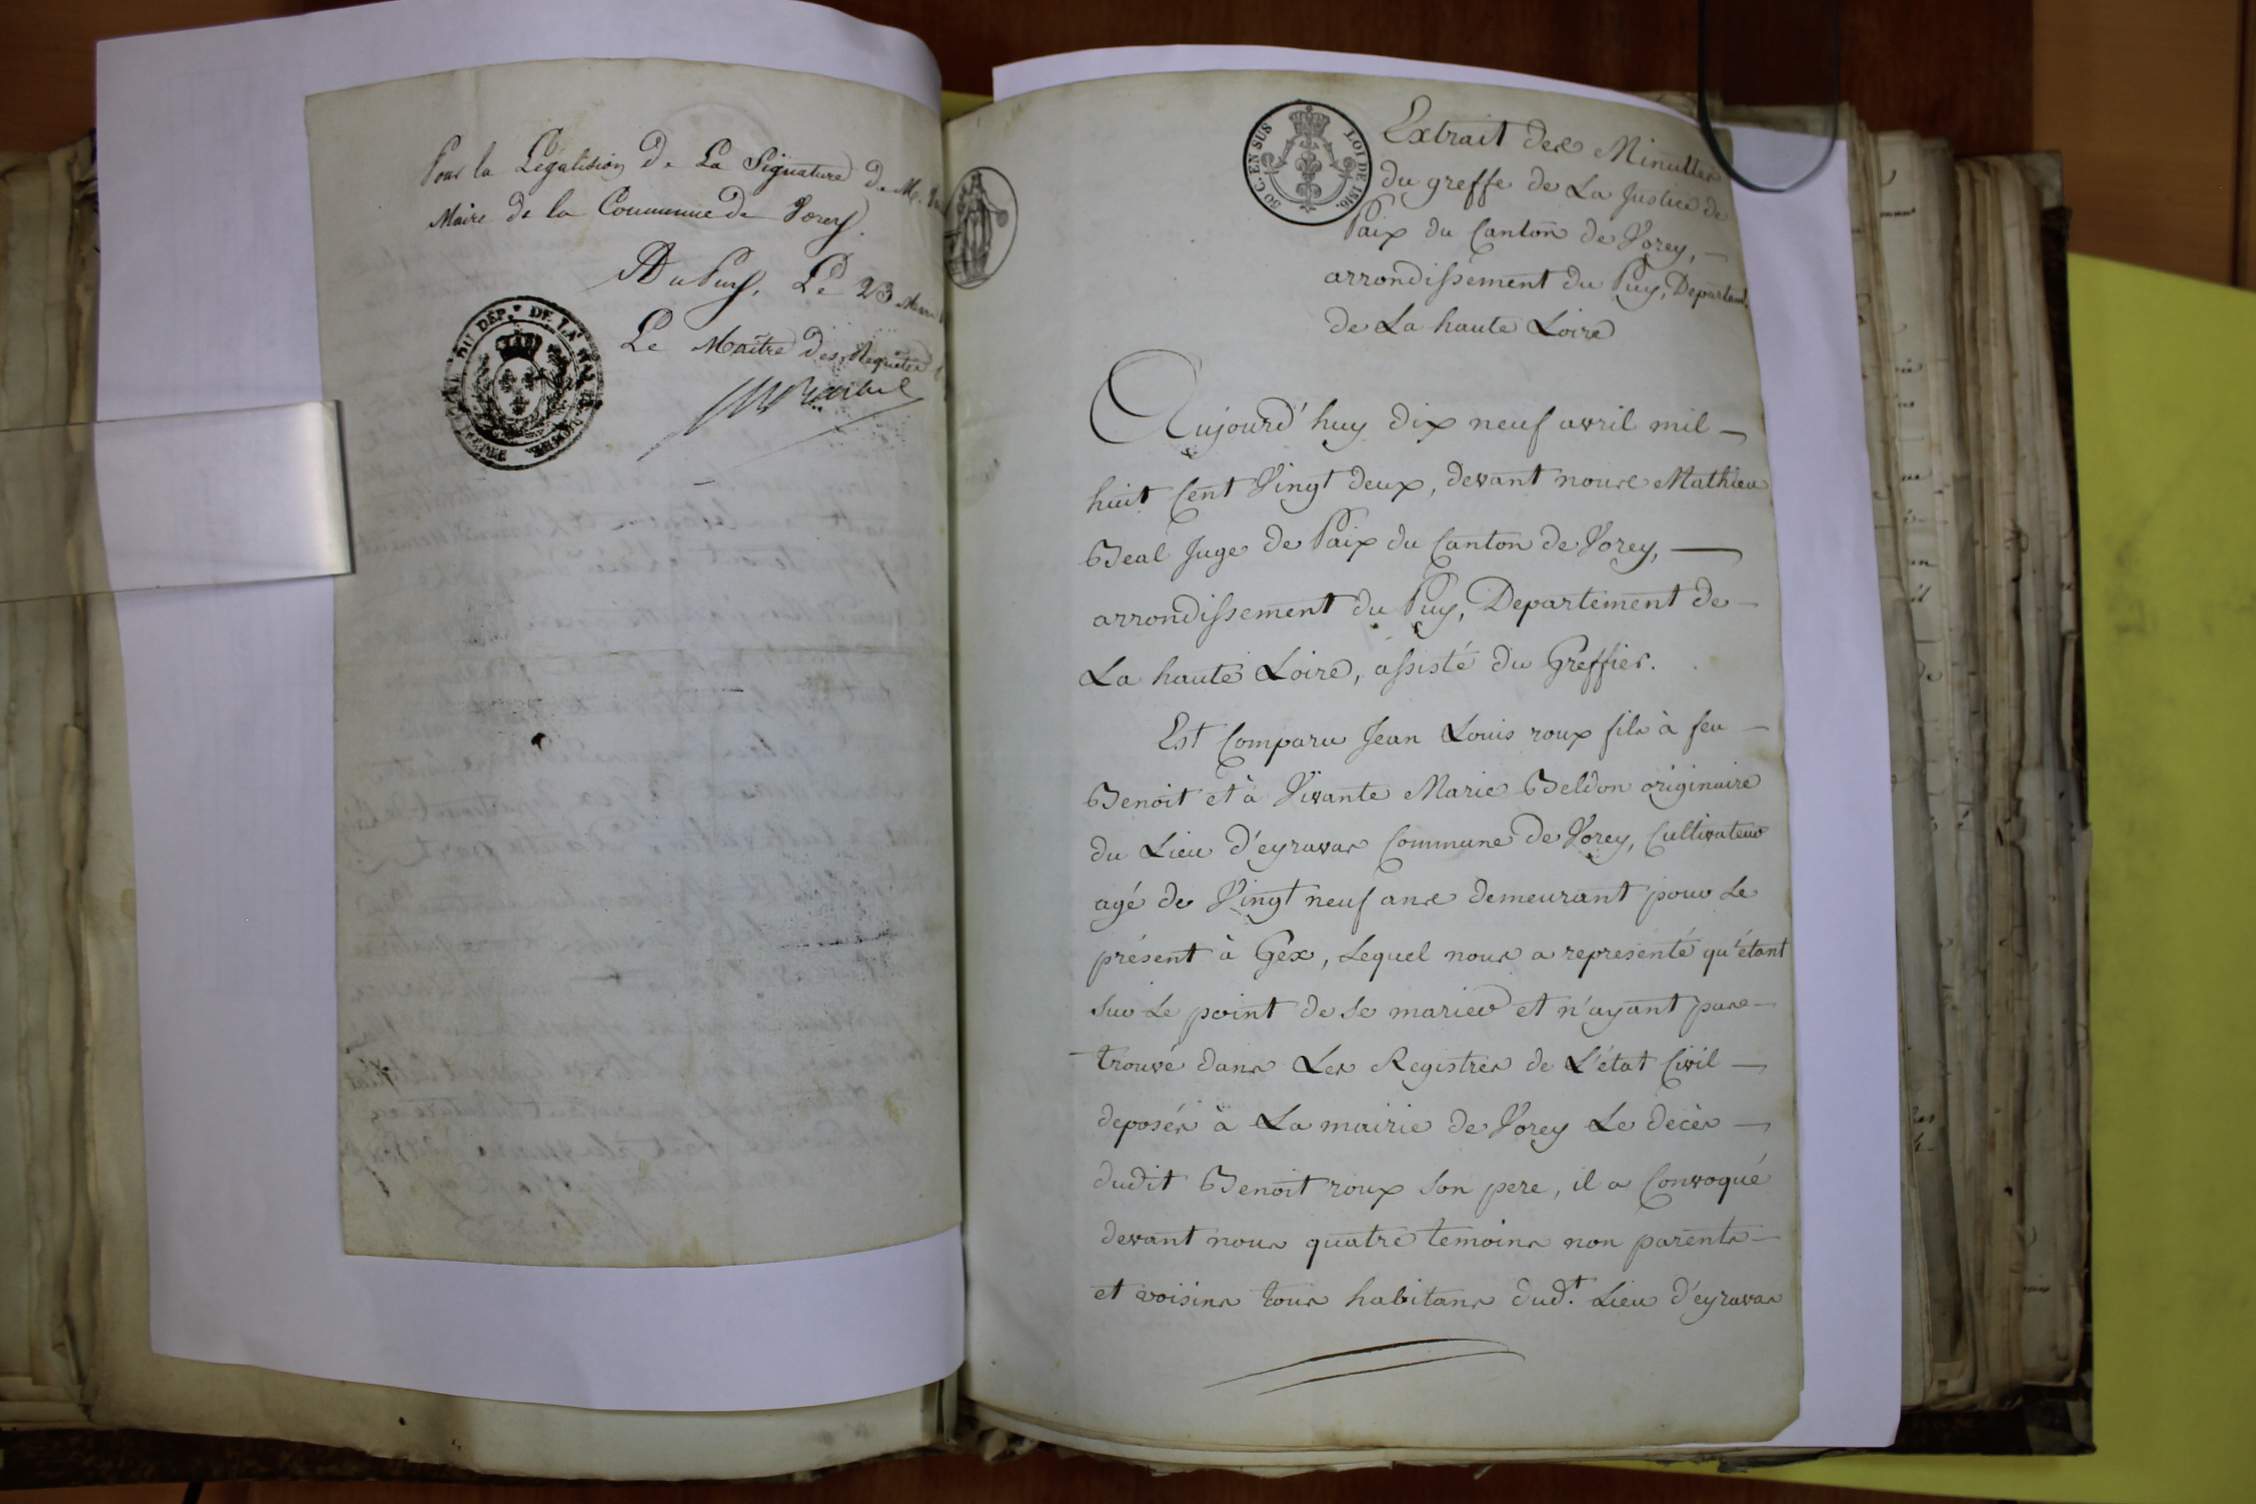 Pour la Légalision de La Signature de M.
Maire de la Commune de Vorey.
Au Puy, Le 23
Le Maître des Requêtes
DU DEP.T DE LA
50 C. EN SUS
LOI DE 1816.
Extrait des Minuttes
du greffe de La Justice de
Paix du Canton de Vorey, —
arrondissement du Puy, Departem.t
de La haute Loire
Aujourd'huy dix neuf avril mil —
huit Cent Vingt deux, devant nous Mathieu
Beal Juge de Paix du Canton de Vorey, —
arrondissement du Puy, Departement de —
La haute Loire, assisté du Greffier.
Est Comparu Jean Louis roux fils à feu —
Benoit et à Vivante Marie Beldon originaire
du Lieu d'eyravas Commune de Vorey, Cultivateur
agé de Vingt neuf ans demeurant pour Le
présent à Gex, Lequel nous a representé qu'étant
sur Le point de Se marier et n'ayant pas —
trouvé dans Les Registres de L'état Civil —
deposés à La mairie de Vorey Le decès —
dudit Benoit roux Son pere, il a Convoqué
devant nous quatre temoins non parents —
et voisins tous habitans dud.t Lieu d'eyravas